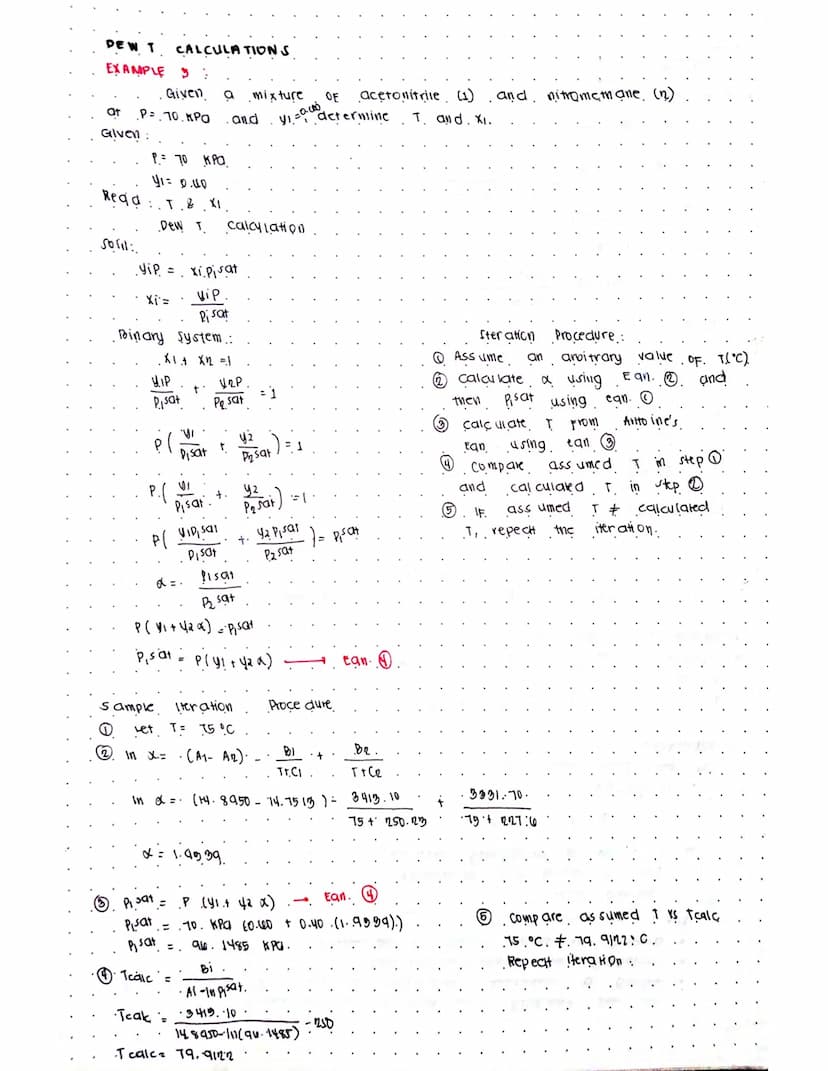 DEW T CALCULATIONS
EXAMPLE 3 :
Given a mixture OF acetonitrile (1) and nitromethane (2)
at P= 70 KPa and y1= 0.60, determine T and x1.
Given:
P= 70 KPa
y1= 0.60
Reqd : T & x1
Dew T Calculation
Sol'n:
yiP = xiPisat
xi = yiP / Pisat
Binary System :
x1 + x2 = 1
y1P / P1sat + y2P / P2sat = 1
P( y1 / P1sat + y2 / P2sat ) = 1
P( y1 / P1sat + y2 / P2sat ) = 1
P( y1P1sat / P1sat + y2P1sat / P2sat ) = P1sat
α = P1sat / P2sat
P( y1 + y2 α) = P1sat
P1sat = P(y1 + y2 α) → Eqn. ④
Iteration Procedure :
① Assume an arbitrary value OF T(°C)
② Calculate α using Eqn. ② and
then P1sat using eqn. ①
③ Calculate T from Antoine's
Eqn using Eqn ③
④ Compare assumed T in step ①
and calculated T in step ②
⑤ IF assumed T ≠ calculated
T, repeat the iteration.
Sample Iteration Procedure
① Let T= 75 °C
② ln α = (A1- A2) - B1 / T+C1 + B2 / T+C2
ln α = (14.8950 - 14.7513) - 3413.10 / 75 + 250.23 + 3331.70 / 75 + 227.6
α = 1.9339
③ P1sat = P (y1 + y2 α) → Eqn. ④
P1sat = 70 KPa (0.60 + 0.40 (1.9339))
P1sat = 96.1485 KPa
④ Tcalc = B1 / A1-lnP1sat
Tcalc = 3413.10 / 14.8950-ln(96.1485) - 250
Tcalc = 79.9122
⑤ Compare assumed T vs Tcalc
75 °C ≠ 79.9122 °C
Repeat Iteration :